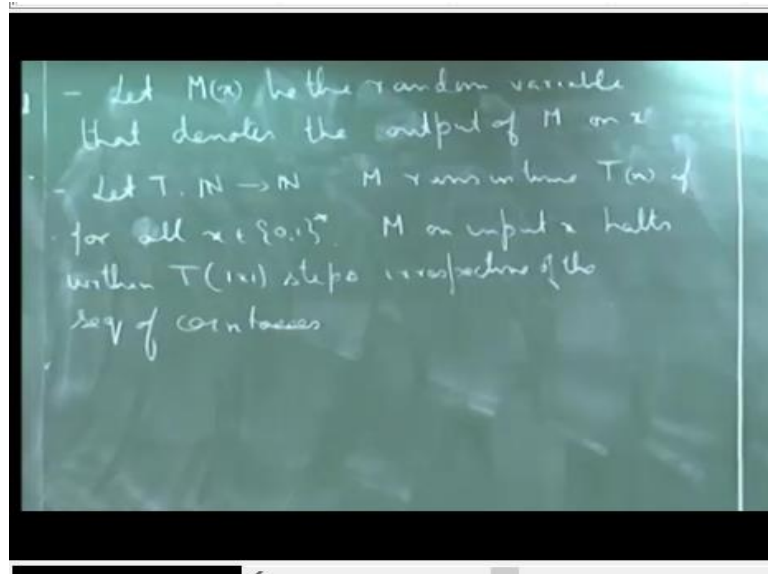 - Let M(x) be the random variable
that denotes the output of M on x
- Let T: ℕ → ℕ M runs in time T(n) if
for all x ∈ {0,1}*. M on input x halts
within T(|x|) steps irrespective of the
seq of coin tosses